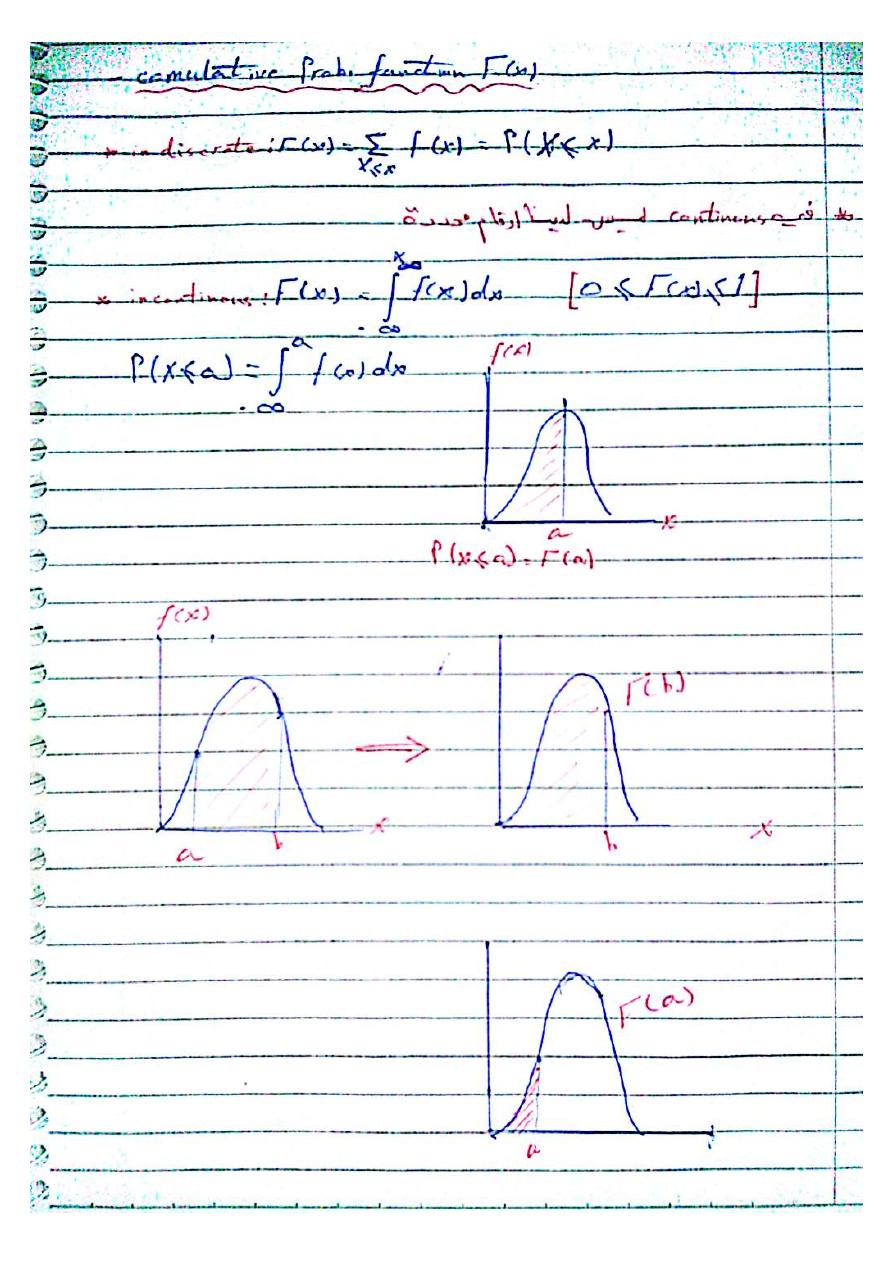 camulative Prob. function F(x)
* in discrete : F(x) = Σ f(x) = P(X ≤ x)
X≤x
* في continous ليس لدينا ارقام محددة
* in continous : F(x) = ∫ f(x) dx [0 ≤ F(x) ≤ 1]
- ∞
P(X ≤ a) = ∫ᵃ f(x) dx
- ∞
f(x)
x
a
P(x ≤ a) = F(a)
f(x)
F(b)
a b x
b x
F(a)
a